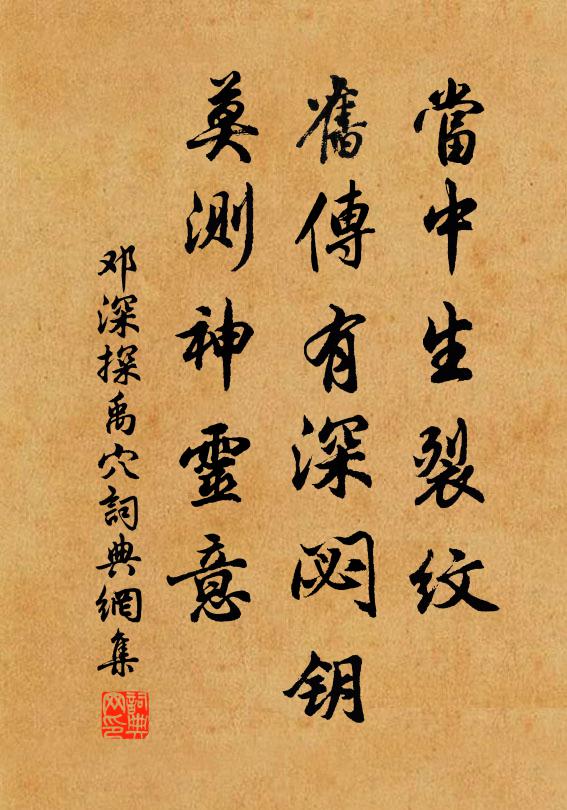 當中生裂紋
舊傳有深閟钥
莫測神靈意
邓深探禹穴詞典網集
詞典网印